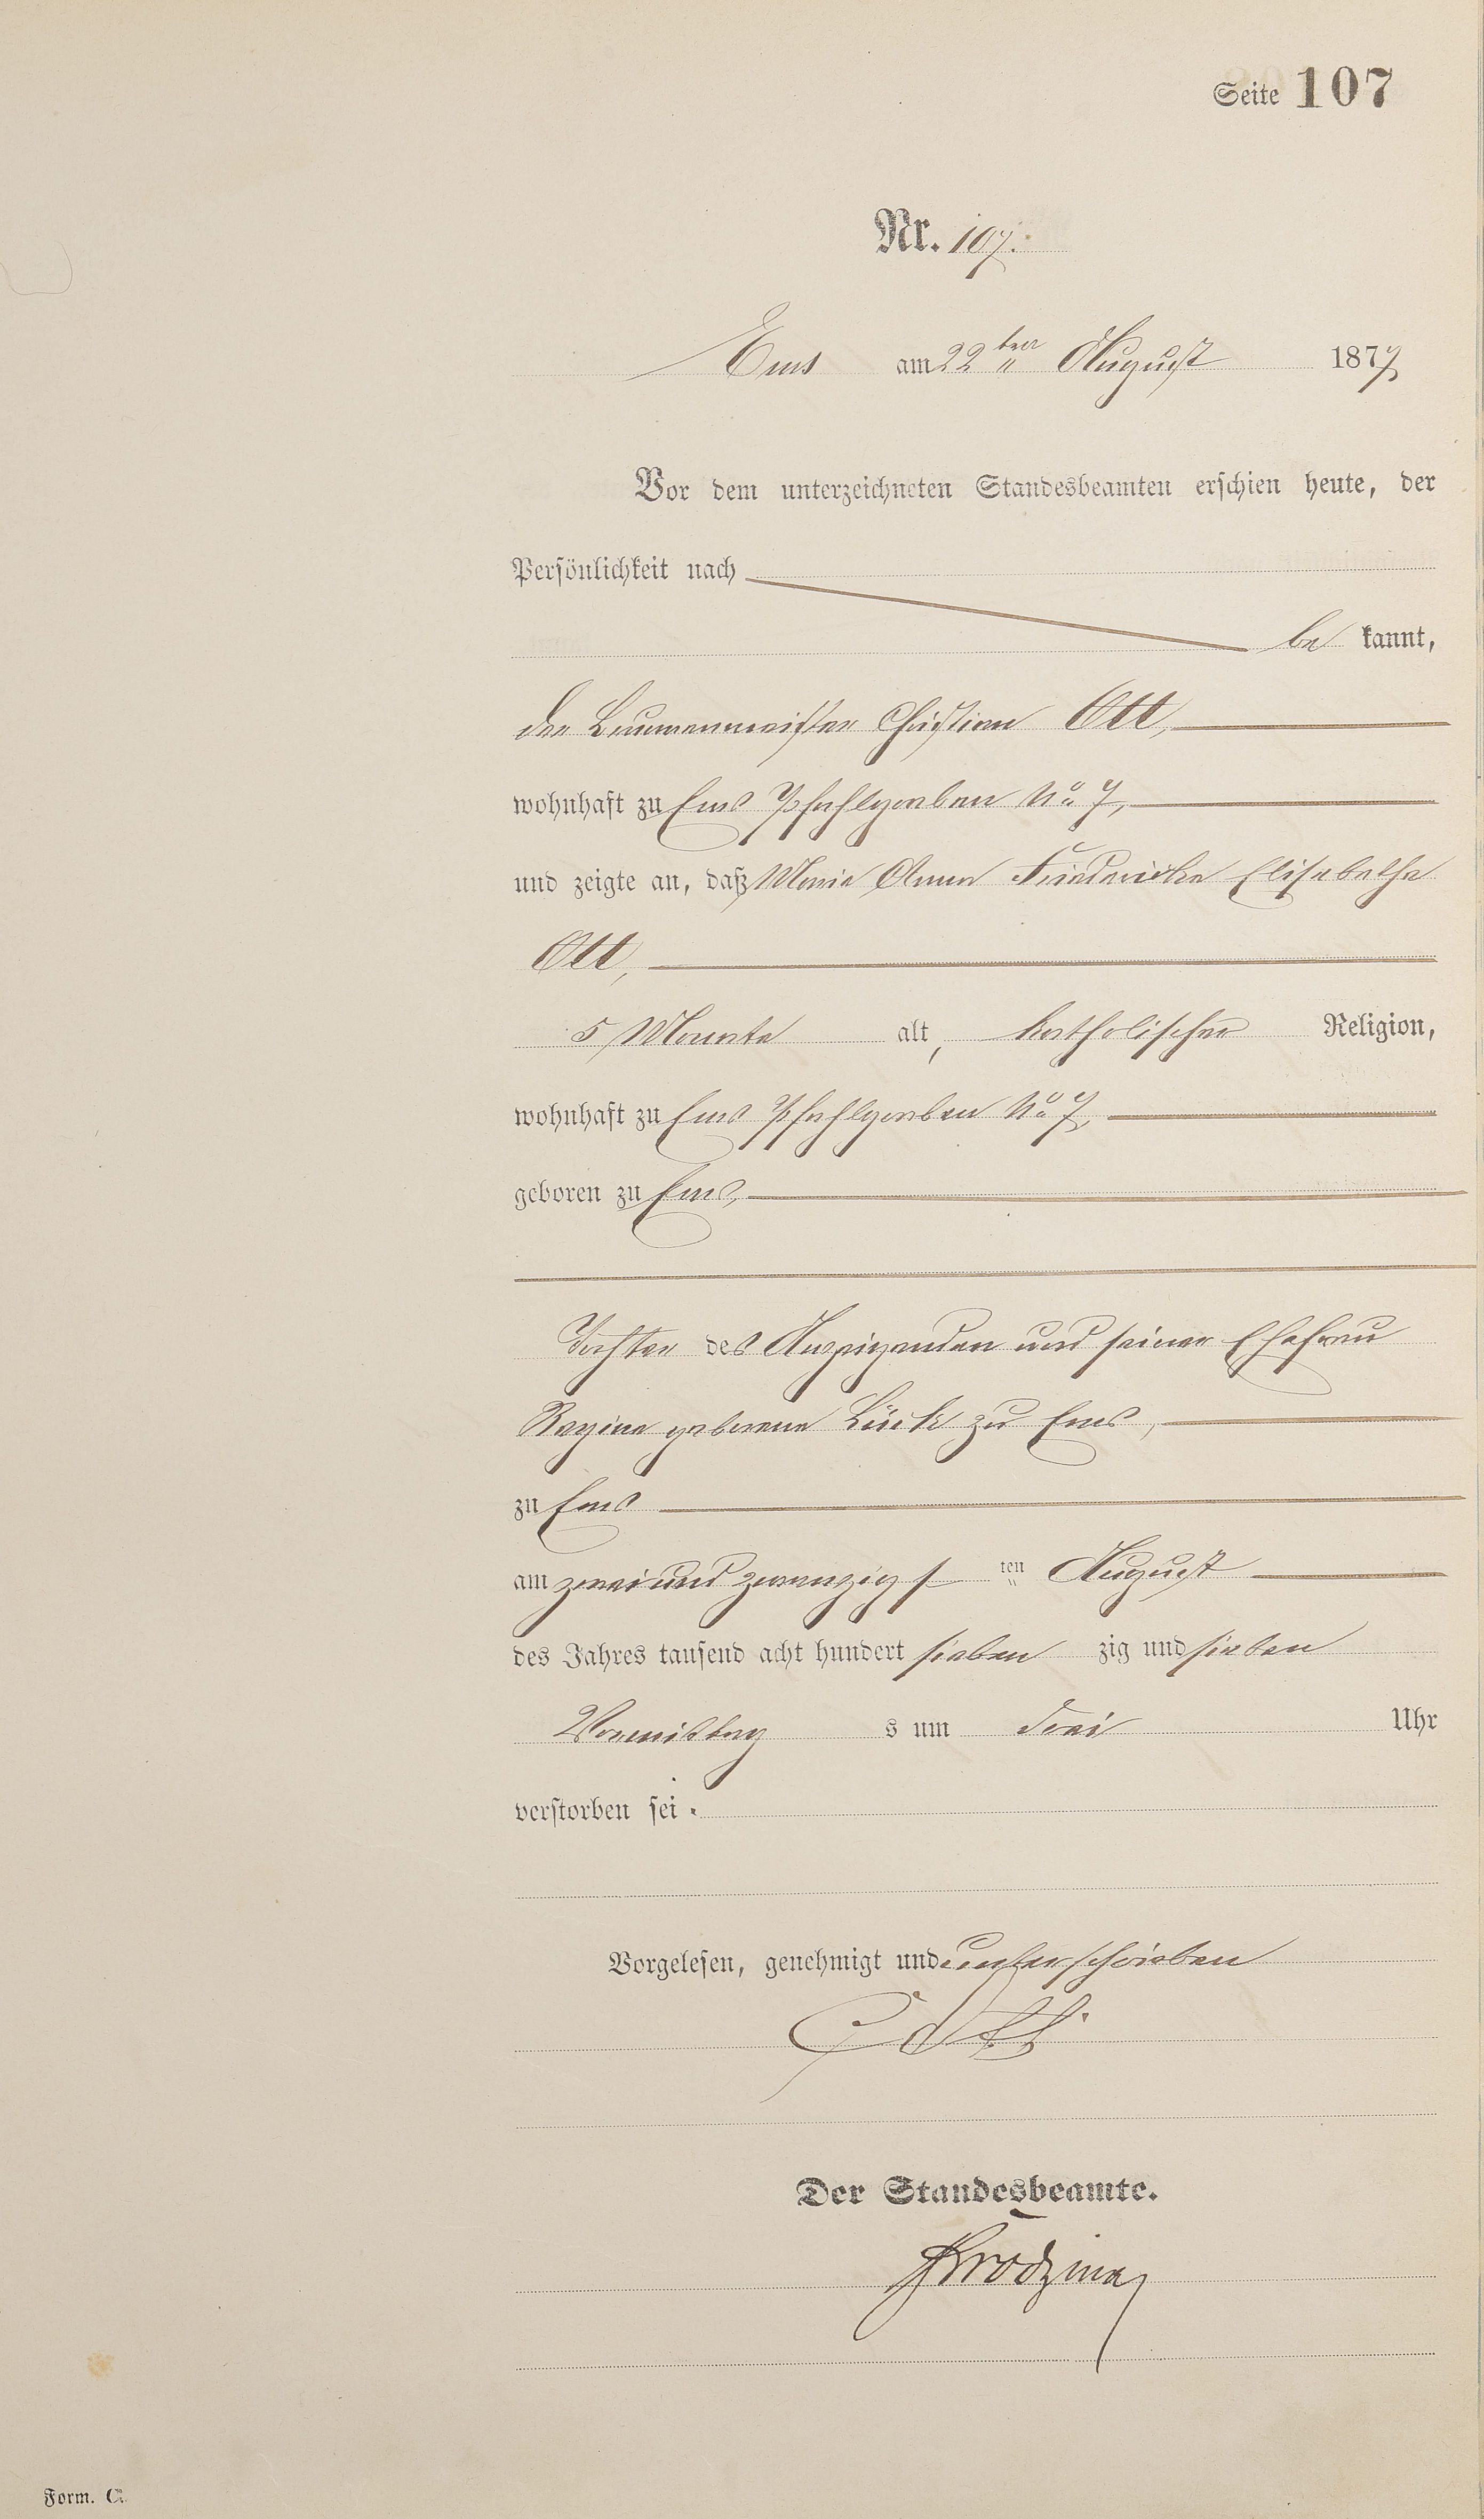 Seite 107
Nr. 107.
Ems am 22ten August 1877
Vor dem unterzeichneten Standesbeamten erschien heute, der
Persönlichkeit nach
be kannt,
der Brunnenmeister Christian Ott,
wohnhaft zu Ems Pfahlgraben No 7,
und zeigte an, daß Marie Anna Friedericke Elisabetha
Ott,
5 Monate alt, katholischer Religion,
wohnhaft zu Ems Pfahlgraben No 7,
geboren zu Ems,
Tochter des Anzeigenden und seiner Ehefrau
Regina geborene Lück zu Ems,
zu Ems
am zwei und zwanzigsten August
des Jahres tausend acht hundert sieben zig und sieben
Vormittag s um drei Uhr
verstorben sei.
Vorgelesen, genehmigt und unterschrieben
C Ott
Der Standesbeamte.
Form. C.